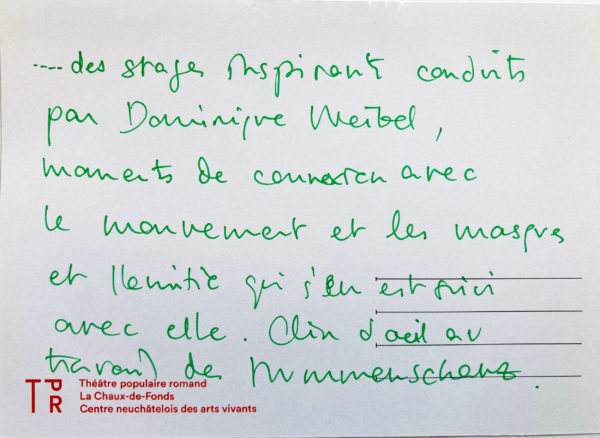 .... des stages inspirants conduits
par Dominique Weibel,
moments de connexion avec
le mouvement et les masques
et l'amitié qui s'en est suivi
avec elle. Clin d'oeil au
travail de Mummenschanz.
TPR
Théâtre populaire romand
La Chaux-de-Fonds
Centre neuchâtelois des arts vivants